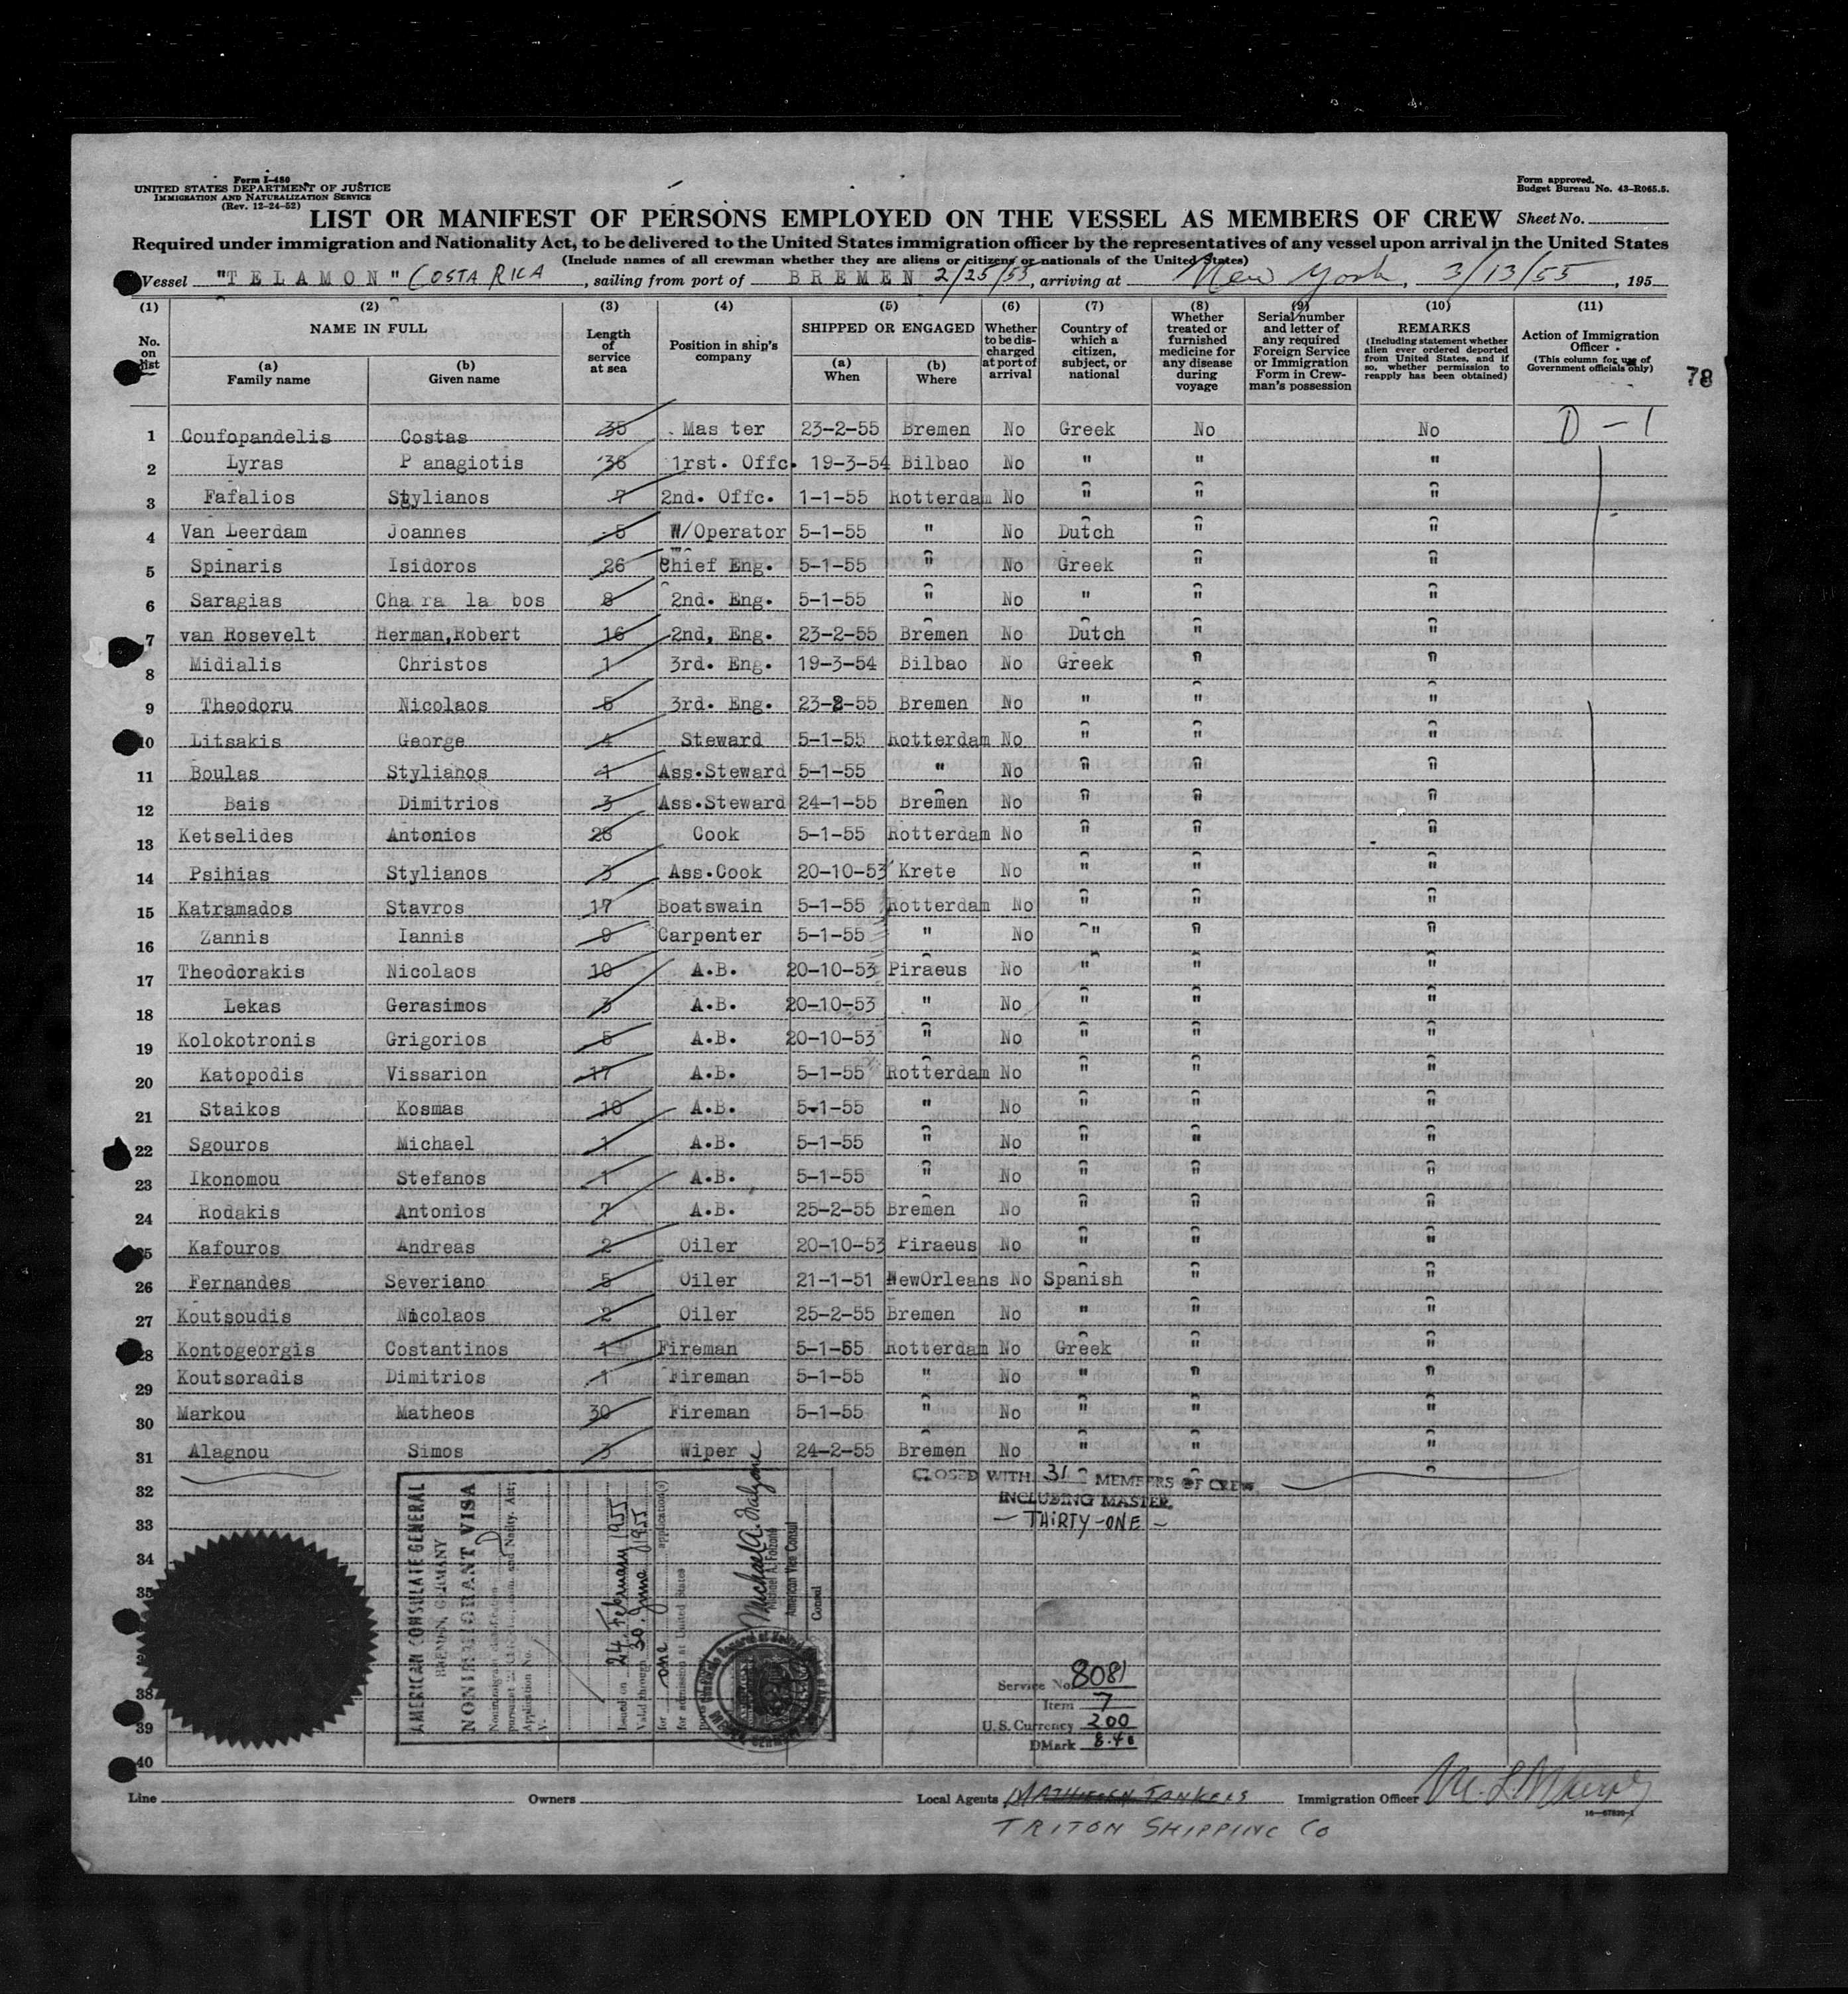 Form I-480
UNITED STATES DEPARTMENT OF JUSTICE
IMMIGRATION AND NATURALIZATION SERVICE
(Rev. 12-24-52)
Form approved.
Budget Bureau No. 43-R065.5.
LIST OR MANIFEST OF PERSONS EMPLOYED ON THE VESSEL AS MEMBERS OF CREW Sheet No.
Required under immigration and Nationality Act, to be delivered to the United States immigration officer by the representatives of any vessel upon arrival in the United States
(Include names of all crewman whether they are aliens or citizens or nationals of the United States)
Vessel "TELAMON" COSTA RICA, sailing from port of BREMEN 2/25/55, arriving at New York, 3/13/55, 195
(1) (2) (3) (4) (5) (6) (7) (8) (9) (10) (11)
No. on list
NAME IN FULL
(a) Family name
(b) Given name
Length of service at sea
Position in ship's company
SHIPPED OR ENGAGED
(a) When
(b) Where
Whether to be discharged at port of arrival
Country of which a citizen, subject, or national
Whether treated or furnished medicine for any disease during voyage
Serial number and letter of any required Foreign Service or Immigration Form in Crewman's possession
REMARKS
(Including statement whether alien ever ordered deported from United States, and if so, whether permission to reapply has been obtained)
Action of Immigration Officer
(This column for use of Government officials only)
78
1 Coufopandelis Costas 35 Master 23-2-55 Bremen No Greek No No D-1
2 Lyras Panagiotis 36 1rst. Offc. 19-3-54 Bilbao No " " "
3 Fafalios Stylianos 7 2nd. Offc. 1-1-55 Rotterdam No " " "
4 Van Leerdam Joannes 5 W/Operator 5-1-55 " No Dutch " "
5 Spinaris Isidoros 26 Chief Eng. 5-1-55 " No Greek " "
6 Saragias Charalabos 8 2nd. Eng. 5-1-55 " No " " "
7 van Rosevelt Herman,Robert 16 2nd, Eng. 23-2-55 Bremen No Dutch " "
8 Midialis Christos 1 3rd. Eng. 19-3-54 Bilbao No Greek " "
9 Theodoru Nicolaos 5 3rd. Eng. 23-2-55 Bremen No " " "
10 Litsakis George 4 Steward 5-1-55 Rotterdam No " " "
11 Boulas Stylianos 1 Ass.Steward 5-1-55 " No " " "
12 Bais Dimitrios 3 Ass.Steward 24-1-55 Bremen No " " "
13 Ketselides Antonios 28 Cook 5-1-55 Rotterdam No " " "
14 Psihias Stylianos 3 Ass.Cook 20-10-53 Krete No " " "
15 Katramados Stavros 17 Boatswain 5-1-55 Rotterdam No " " "
16 Zannis Iannis 9 Carpenter 5-1-55 " No " " "
17 Theodorakis Nicolaos 10 A.B. 20-10-53 Piraeus No " " "
18 Lekas Gerasimos 3 A.B. 20-10-53 " No " " "
19 Kolokotronis Grigorios 5 A.B. 20-10-53 " No " " "
20 Katopodis Vissarion 17 A.B. 5-1-55 Rotterdam No " " "
21 Staikos Kosmas 10 A.B. 5-1-55 " No " " "
22 Sgouros Michael 1 A.B. 5-1-55 " No " " "
23 Ikonomou Stefanos 1 A.B. 5-1-55 " No " " "
24 Rodakis Antonios 7 A.B. 25-2-55 Bremen No " " "
25 Kafouros Andreas 2 Oiler 20-10-53 Piraeus No " " "
26 Fernandes Severiano 5 Oiler 21-1-51 NewOrleans No Spanish " "
27 Koutsoudis Nicolaos 2 Oiler 25-2-55 Bremen No " " "
28 Kontogeorgis Costantinos 1 Fireman 5-1-55 Rotterdam No Greek " "
29 Koutsoradis Dimitrios 1 Fireman 5-1-55 " No " " "
30 Markou Matheos 30 Fireman 5-1-55 " No " " "
31 Alagnou Simos 3 Wiper 24-2-55 Bremen No " " "
32
33
34
35
38
39
40
CLOSED WITH 31 MEMBERS OF CREW
INCLUDING MASTER.
- THIRTY-ONE -
AMERICAN CONSULATE GENERAL
BREMEN, GERMANY
NONIMMIGRANT VISA
Application No.
V.
Issued on 24 February 1955
Valid through 30 June 1955
for one application(s)
for admission at United States
Michael A. Falzone
American Vice Consul
Consul
Service No. 8081
Item 7
U. S. Currency 200
DMark 8.40
Line
Owners
Local Agents MATHIESEN TANKERS
TRITON SHIPPING CO
Immigration Officer